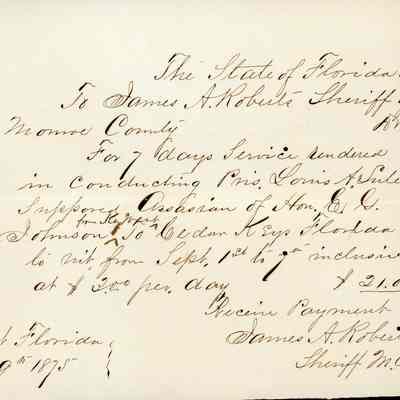 The State of Florida
To James A. Roberts Sheriff
Monroe County
For 7 days Service rendered
in conducting Pris. Louis A.
Supposed Assasian of Hon. E. G.
from Key West
Johnson To Cedar Keys Florida
to wit, from Sept. 1st to 7th inclusiv
at $ 3.00 per. day $ 21.0
Receive Payment
James A. Robert
t Florida Sheriff M.C
9th 1875